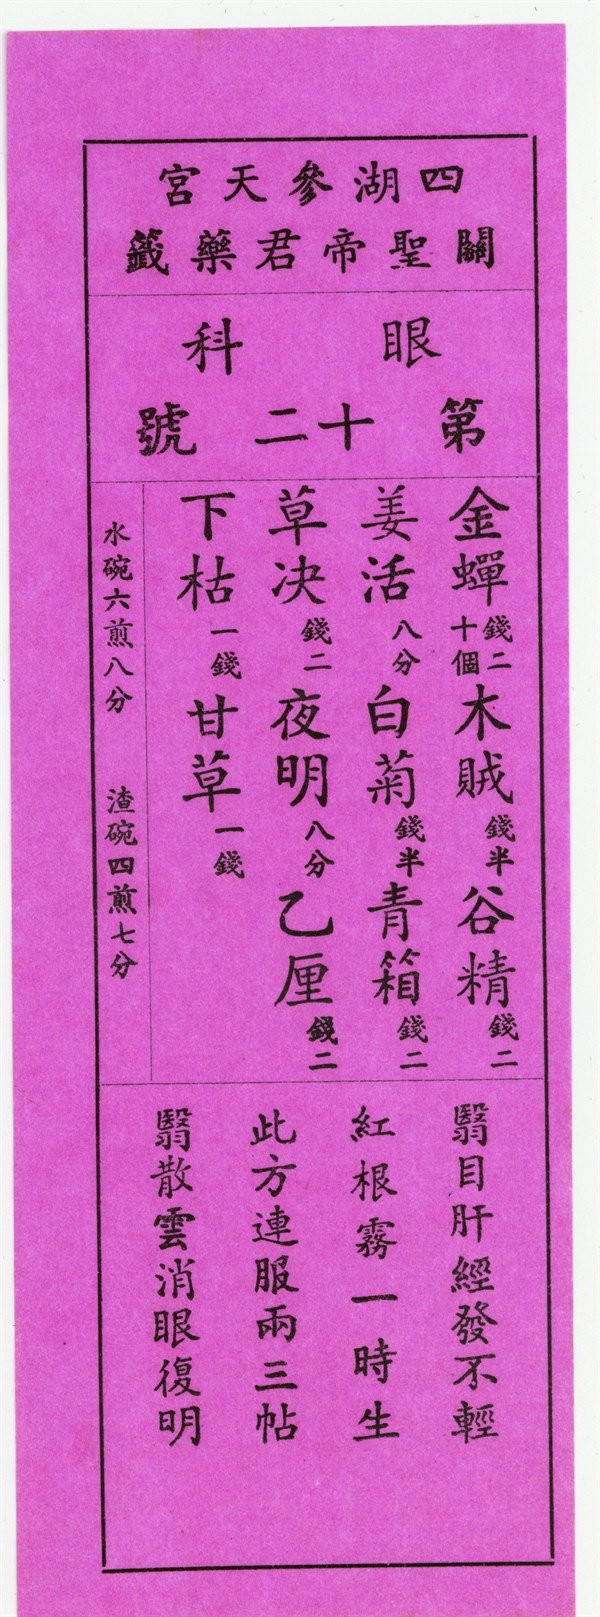 四湖參天宮
關聖帝君藥籤
眼科
第十二號
金蟬錢二十個木賊錢半谷精錢二
姜活八分白菊錢半青箱錢二
草决錢二夜明八分乙厘錢二
下枯一錢甘草一錢
水碗六煎八分 渣碗四煎七分
翳目肝經發不輕
紅根霧一時生
此方連服兩三帖
翳散雲消眼復明